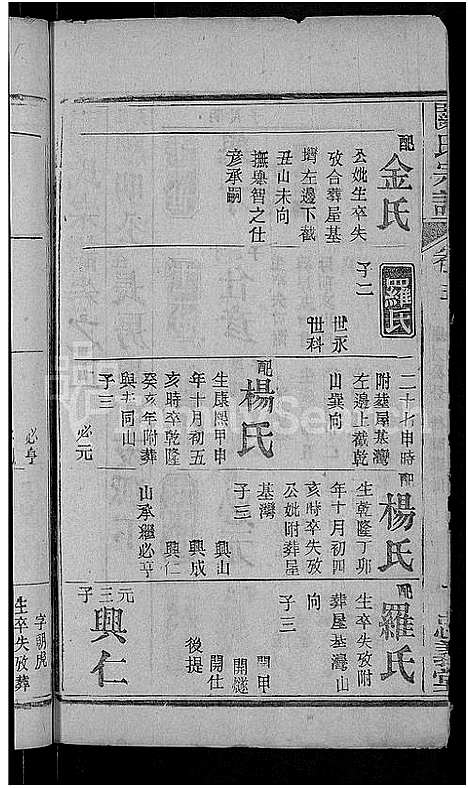 氏宗譜
卷
忠義堂
配
金氏
公妣生卒失
攷合葬屋基
壪左邊下截
丑山未向
撫舉智之仕
彦承嗣
羅氏
子二
世永
世科
二十七申時
附葬屋基灣
左邊上截乾
山巽向
配
楊氏
生康熙甲申
年十月初五
亥時卒乾隆
癸亥年附葬
與夫同山
子三
必元
配
楊氏
生乾隆丁卯
年十月初四
亥時卒失攷
公妣附葬屋
基灣
子三
興山
興成
興仁
山承繼必亨
配
羅氏
生卒失攷附
葬屋基灣山
向
子三
開甲
開燧
開仕
後提
元三子
興仁
必亨
字朝虎
生卒失攷葬